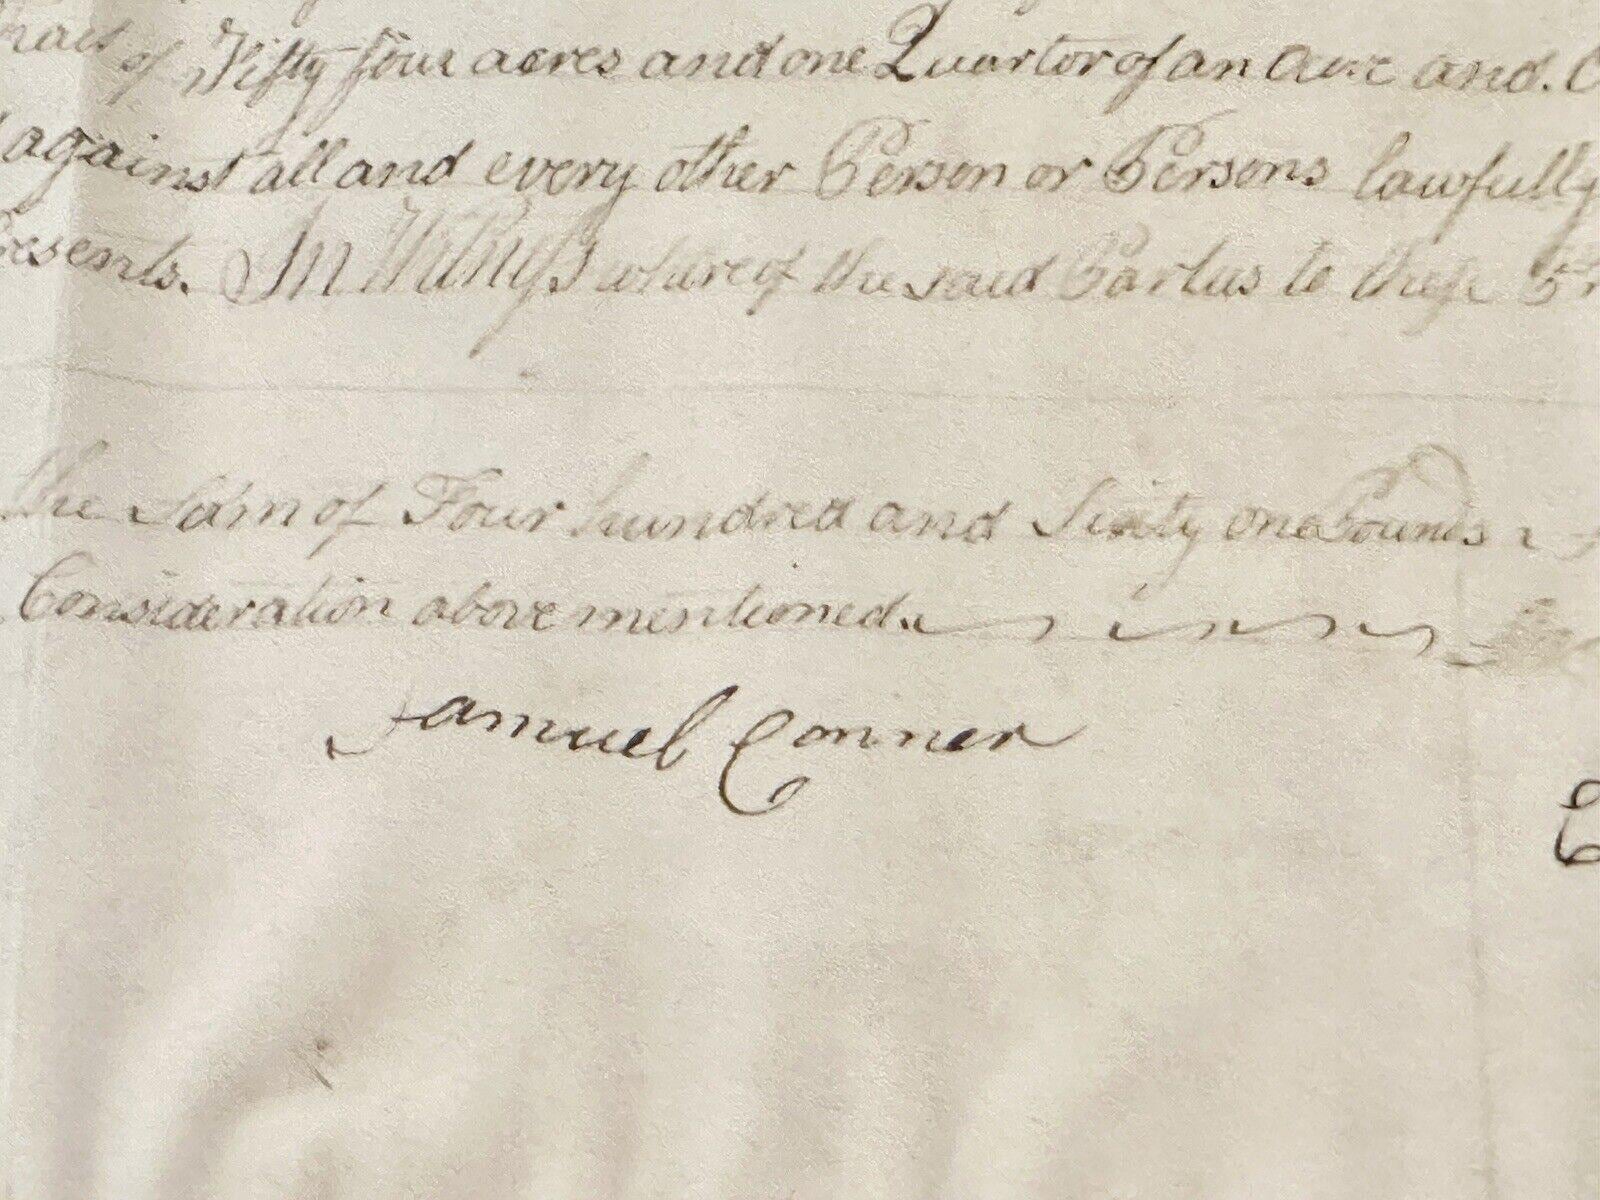 of Fifty four acres and one Quarter of an Acre and.
against all and every other Person or Persons lawfully
Presents. In Witness whereof the said Parties to these
the Sum of Four hundred and Sixty one Pounds
Consideration above mentioned.
Samuel Conner